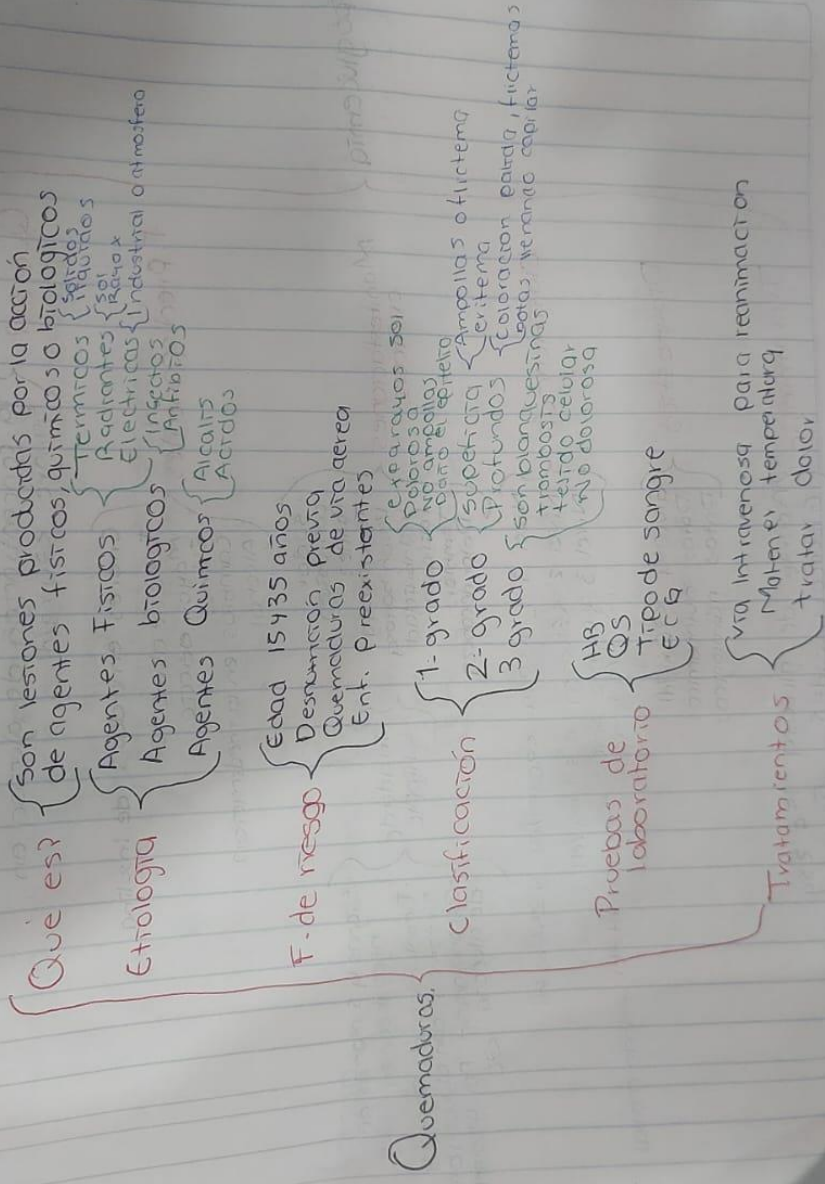 Quemaduras.
Que es?
Son lesiones producidas por la acción
de agentes fisicos, quimicos o biologicos
Etiologia
Agentes Fisicos
Termicos
Solidos
liquidos
Radiantes
Sol
Rayox
Electricas
Industrial o atmosfero
Agentes biologicos
Insectos
Antibios
Agentes Quimcos
Alcalis
Acidos
F. de riesgo
Edad 15 y 35 años
Desnurición previa
Quemaduras de via aerea
Enf. preexistantes
Clasificación
1- grado
expa rayos sol
Dolorosa
No ampollas
Daño el epitelio
2- grado
superficia
Ampollas o flictema
eritema
Profundos
Coloracion palida, flictemas
rotas, llenando capilar
3 grado
son blanquesinas
trombosis
tejido celular
No dolorosa
Pruebas de
laboratorio
HB
QS
Tipo de sangre
ECG
Tratamientos
via Intravenosa para reanimacion
Matener temperatura
tratar dolor